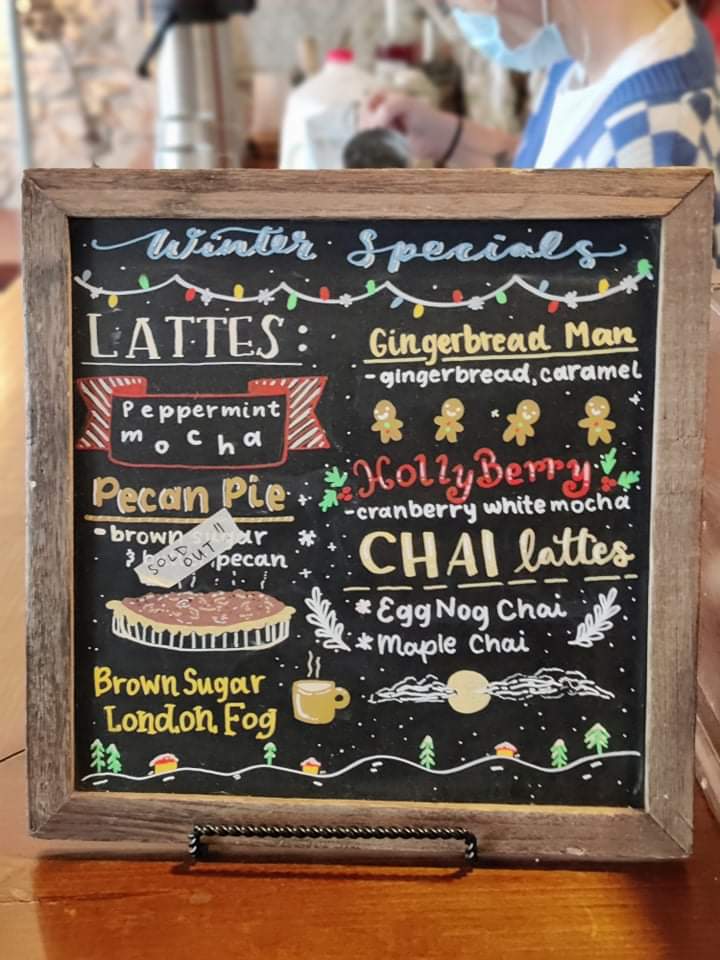 Winter Specials
LATTES:
Peppermint
mocha
Pecan Pie
- brown
pecan
SOLD
OUT!!
Brown Sugar
London Fog
Gingerbread Man
- gingerbread, caramel
HollyBerry
- cranberry white mocha
CHAI lattes
* Egg Nog Chai
* Maple Chai